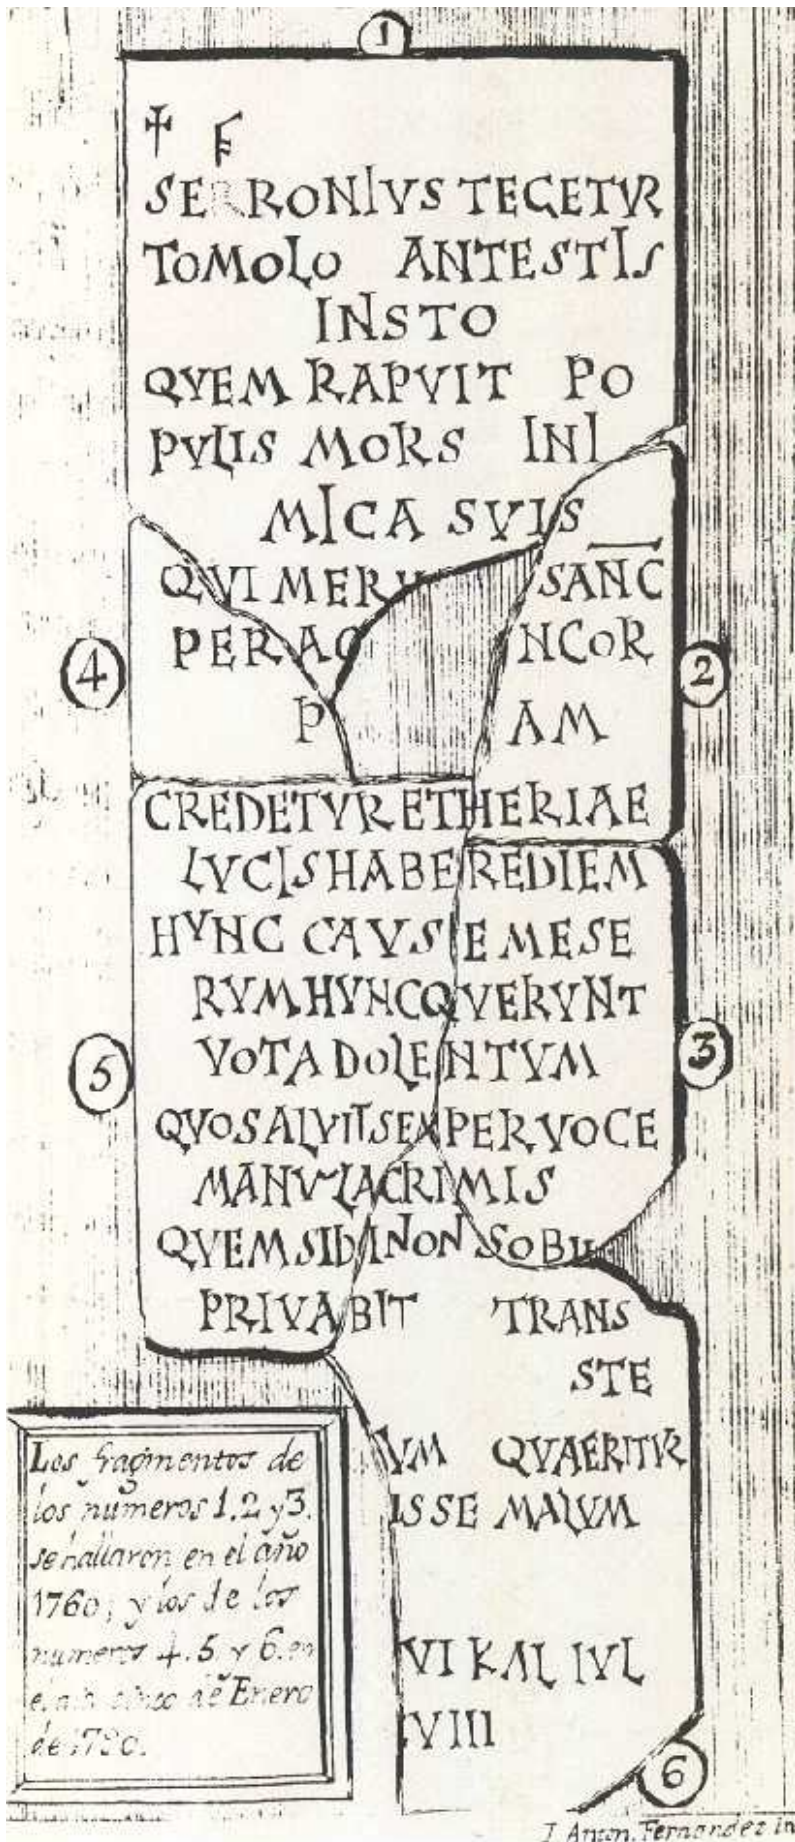 1
SERRONIVS TEGETVR
TOMOLO ANTESTIS
INSTO
QVEM RAPVIT PO
PVLIS MORS INI
MICA SVIS
QVI MERV SANC
PER AG NCOR
P AM
4
2
CREDETVR ETHERIAE
LVCIS HABEREDIEM
HVNC CAVSIE MESE
RVM HVNC QVERVNT
VOTA DOLENTVM
5
3
QVOS ALVIT SEMPER VOCE
MANV LACRIMIS
QVEM SIBI NON SOBV
PRIVABIT TRANS
STE
VM QVAERITVR
ISSE MALVM
VI KAL IVL
VIII
6
Los fragmentos de
los numeros 1. 2 y 3.
se hallaron en el año
1760; y los de los
numeros 4. 5 y 6. en
de Enero
de 1780.
J. Anton. Fernandez in